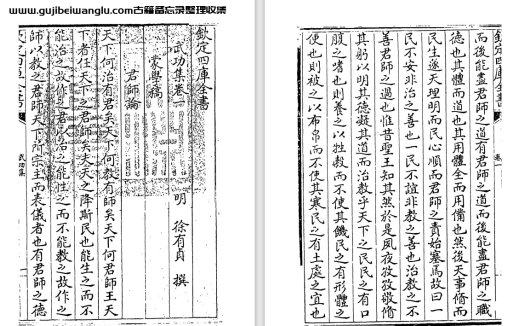 www.gujibeiwanglu.com古籍备忘录整理收集
欽定四庫全書
武功集卷一 明 徐有貞 撰
蒙學稿
君師論
天下何治有君矣天下何教有師矣天下何君師王天
下者任天下之君師矣夫天之降斯民也能生之而不
能治之故作之君以治之能性之而不能教之故作之
師以教之君師天下所宗主而表儀者也有君師之德
欽定四庫全書
武功集
欽定四庫全書
卷一
而後能盡君師之道有君師之道而後能盡君師之職
德也其體而道也其用體全而用備也然後天事脩而
民生遂天理明而民心順而君師之責始塞焉故曰一
民不安非治之善也一民不誼非教之善也治教之不
善君師之過也惟昔聖王知其然於是夙夜孜孜敬脩
其躬以明其德凝其道而治教乎天下之民民之有口
腹之嗜也則養之以牲穀而不使其饑民之有形體之
便也則被之以布帛而不使其寒民之有土處之宜也